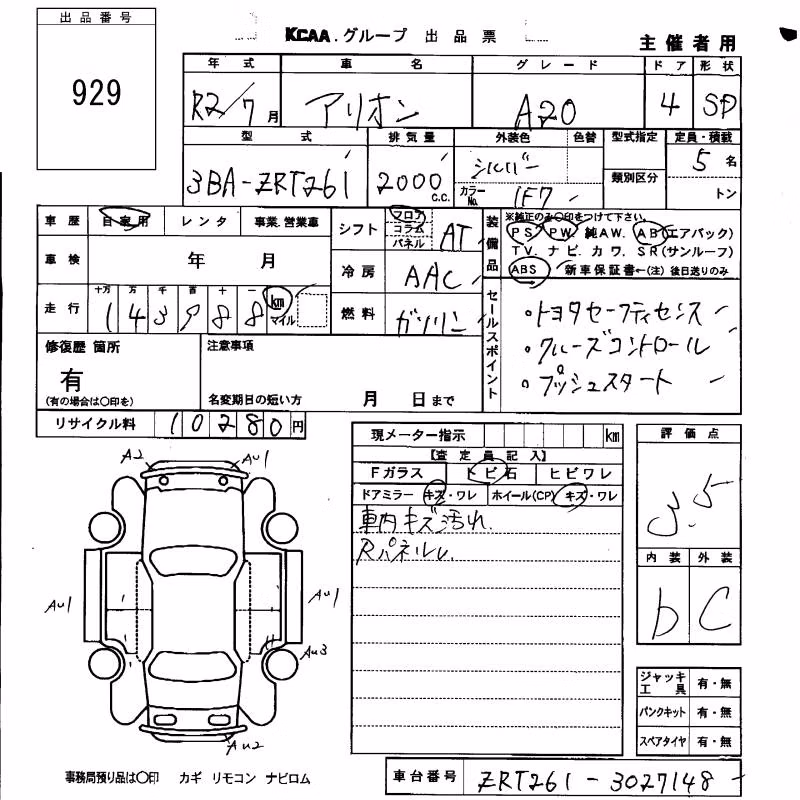 出品番号
929
KCAA.グループ 出品票
主催者用
年式 車名 グレード ドア 形状
R2/7月 アリオン A20 4 SD
型式 排気量 外装色 色替 型式指定 定員・積載
3BA-ZRT261 2000 c.c. シルバー 類別区分 5名
カラーNo. 1F7 トン
車歴 自家用 レンタ 事業.営業車
シフト フロア コラム パネル AT
装備品 ※純正のみ〇印をつけて下さい。
PS PW 純AW. AB(エアバック)
TV. ナビ. カワ. SR(サンルーフ)
ABS 新車保証書←(注)後日送りのみ
車検 年 月
冷房 AAC
走行 十万 万 千 百 十 一
143988 km マイル
燃料 ガソリン
セールスポイント
・トヨタセーフティセンス
・クルーズコントロール
・プッシュスタート
修復歴 箇所
有
(有の場合は〇印を)
注意事項
名変期日の短い方 月 日まで
リサイクル料 10280円
現メーター指示 km
【査定員記入】
Fガラス トビ石 ヒビワレ
ドアミラー キズ・ワレ ホイール(CP) キズ・ワレ
車内キズ汚れ.
Rパネルv.
評価点
3.5
内装 外装
b C
A2 AU1
AU1 AU1
AU3
AU2
ジャッキ工具 有・無
パンクキット 有・無
スペアタイヤ 有・無
事務局預り品は〇印 カギ リモコン ナビロム
車台番号 ZRT261-3027148